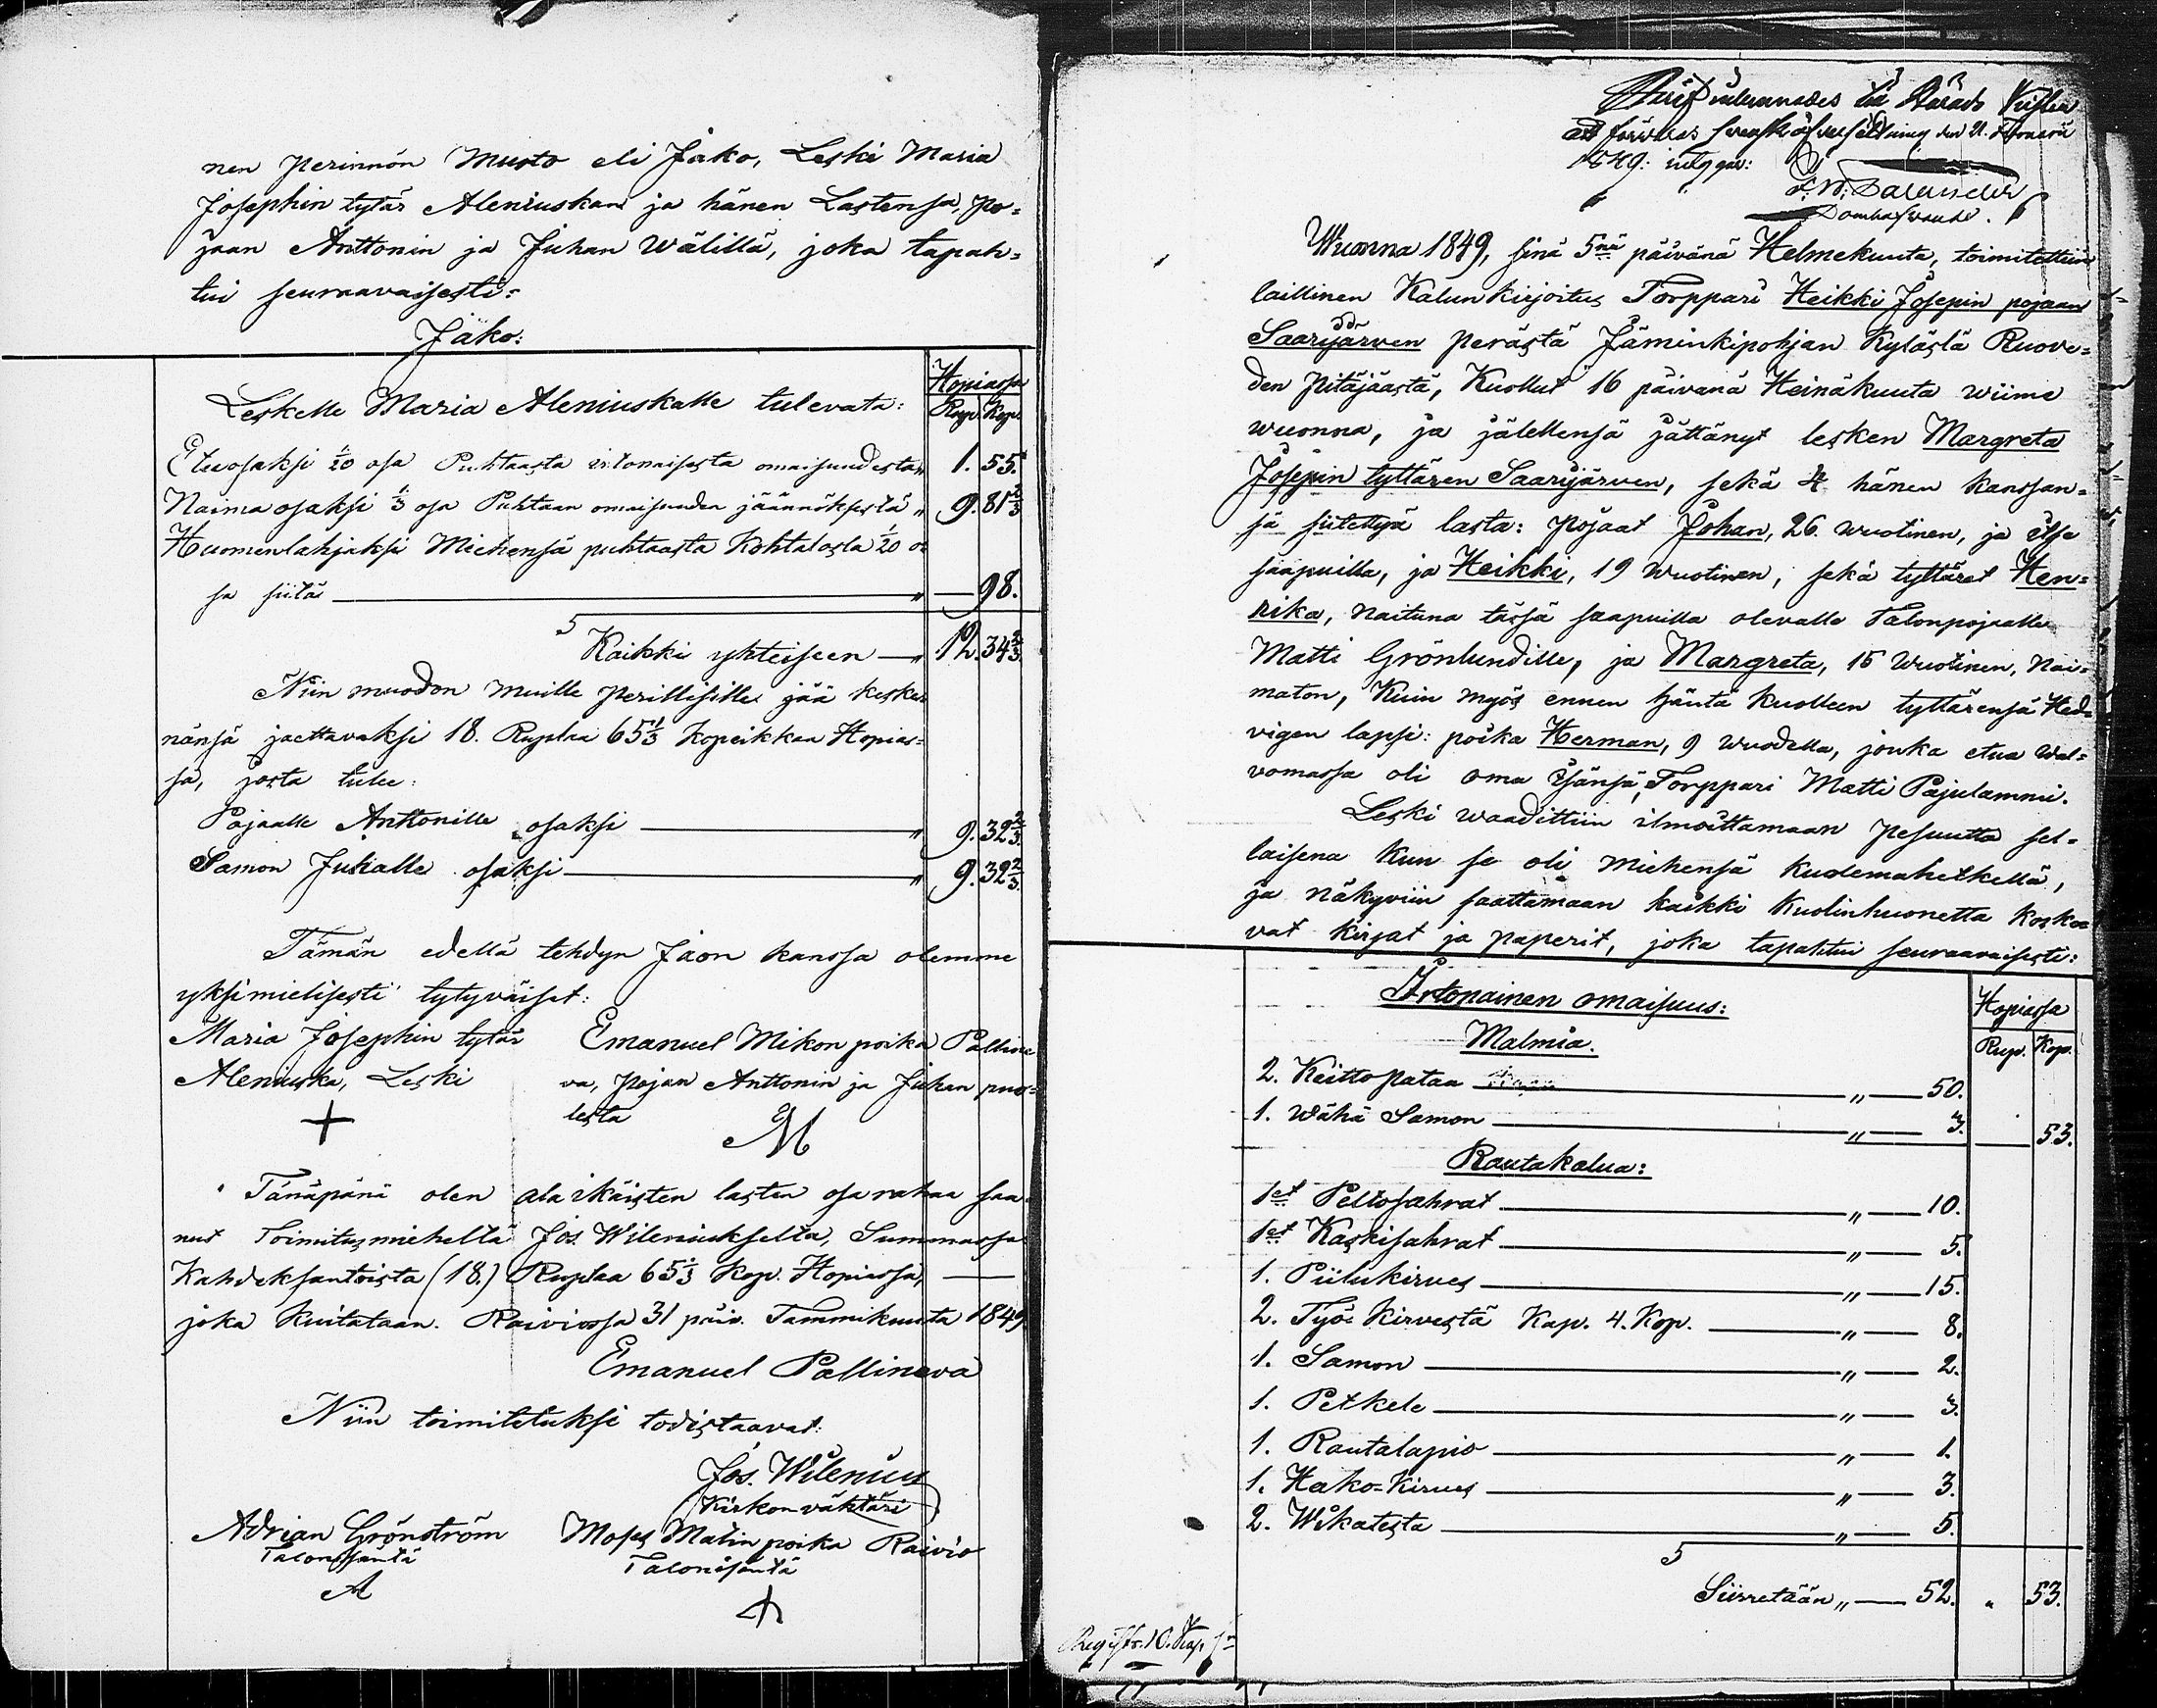 nen perinnön Muoto eli Jako, Leski Maria
Josephin tytär Aleniuskan ja hänen Lastensa, po=
jaan Anttonin ja Juhan wälillä, joka tapah=
tui seuraavaisesti:
Jako:
Hopiassa
Leskelle Maria Aleniuskalle tulevata: Rup. Kop.
Etuosaksi 1/20 osa Puhtaasta irtonaisesta omaisuudesta „ 1. 55.
Naima osaksi 1/3 osa Puhtaan omaisuuden jäännöksestä „ 9. 81 2/3
Huomenlahjaksi Miehensä puhtaasta Kohtalosta 1/20 o=
sa siitä „ — 98.
Kaikki yhteiseen — „ 12. 34 2/3.
Niin muodon muille perillisille jää keske=
nänsä jaettavaksi 18. Ruplaa 65 1/3 Kopeikkaa Hopias=
sa, josta tulee:
Pojaalle Anttonille osaksi „ 9. 32 2/3.
Samon Juhalle osaksi „ 9. 32 2/3.
Tämän edellä tehdyn Jaon kanssa olemme
yksimielisesti tytyväiset:
Maria Josephin tytär Emanuel Mikon poika Palline
Aleniuska, Leski va, pojan Anttonin ja Juhan puo=
lesta
Tänäpänä olen ala ikäisten lasten osa rahaa saa
nut Toimitusmieheltä Jos. Wileniukselta, Summassa
Kahdeksantoista (18.) Ruplaa 65 1/3 Kop. Hopiassa, —
joka kuitataan. Raiviossa 31 päiv. Tammikuuta 1849.
Emanuel Pallineva
Niin toimitetuksi todistaavat:
Jos. Wilenius
Kirkon väktäri
Adrian Grönström Moses Matin poika Raivio
Talonisäntä Talonisäntä
A
till Härads
den 21.
1849:
Wuonna 1849, sinä 5nä päivänä Helmekuuta, toimitettiin
laillinen Kalun kirjoitus Torppari Heikki Josepin pojaan
Saarijärven perästä Jäminkipohjan Kylästä Ruove=
den pitäjäästä, Kuollut 16 päivänä Heinäkuuta wiime
wuonna, ja jälellensä jättänyt lesken Margreta
Josepin tyttären Saarijärven, sekä 4 hänen kanssan=
sa siitettyä lasta: pojaat Johan, 26. wuotinen, ja itse
saapuilla, ja Heikki, 19 wuotinen, sekä tyttäret Hen=
rika, naituna tässä saapuilla olevalle Talonpojalle
Matti Grönlundille, ja Margreta, 15 wuotinen, nai=
maton, Kuin myös ennen häntä kuolleen tyttärensä Hed=
vigen lapsi: poika Herman, 9 wuodella, jonka etua wal=
vomassa oli oma Isänsä, Torppari Matti Pajulammi.
Leski waadittiin ilmoittamaan pesuutta sel=
laisena kun se oli miehensä kuolemahetkellä,
ja näkyviin saattamaan kaikki kuolinhuonetta koske
vat kirjat ja paperit, joka tapahtui seuraavaisesti:
Irtonainen omaisuus: Hopiassa
Malmia. Rup. Kop.
2. Keitto pataa „ — 50.
1. Wähä Samon „ — 3. — 53.
Rautakalua:
1et Peltosahrat „ — 10.
1et Kaskisahrat „ — 5.
1. Piilukirves „ — 15.
2. Työ kirvestä Kap. 4. Kop. „ — 8.
1. Samon „ — 2.
1. Petkele „ — 3.
1. Rautalapio „ — 1.
1. Hako-Kirves „ — 3.
2. Wikatesta „ — 5.
Siirretään „ — 52. „ 53.